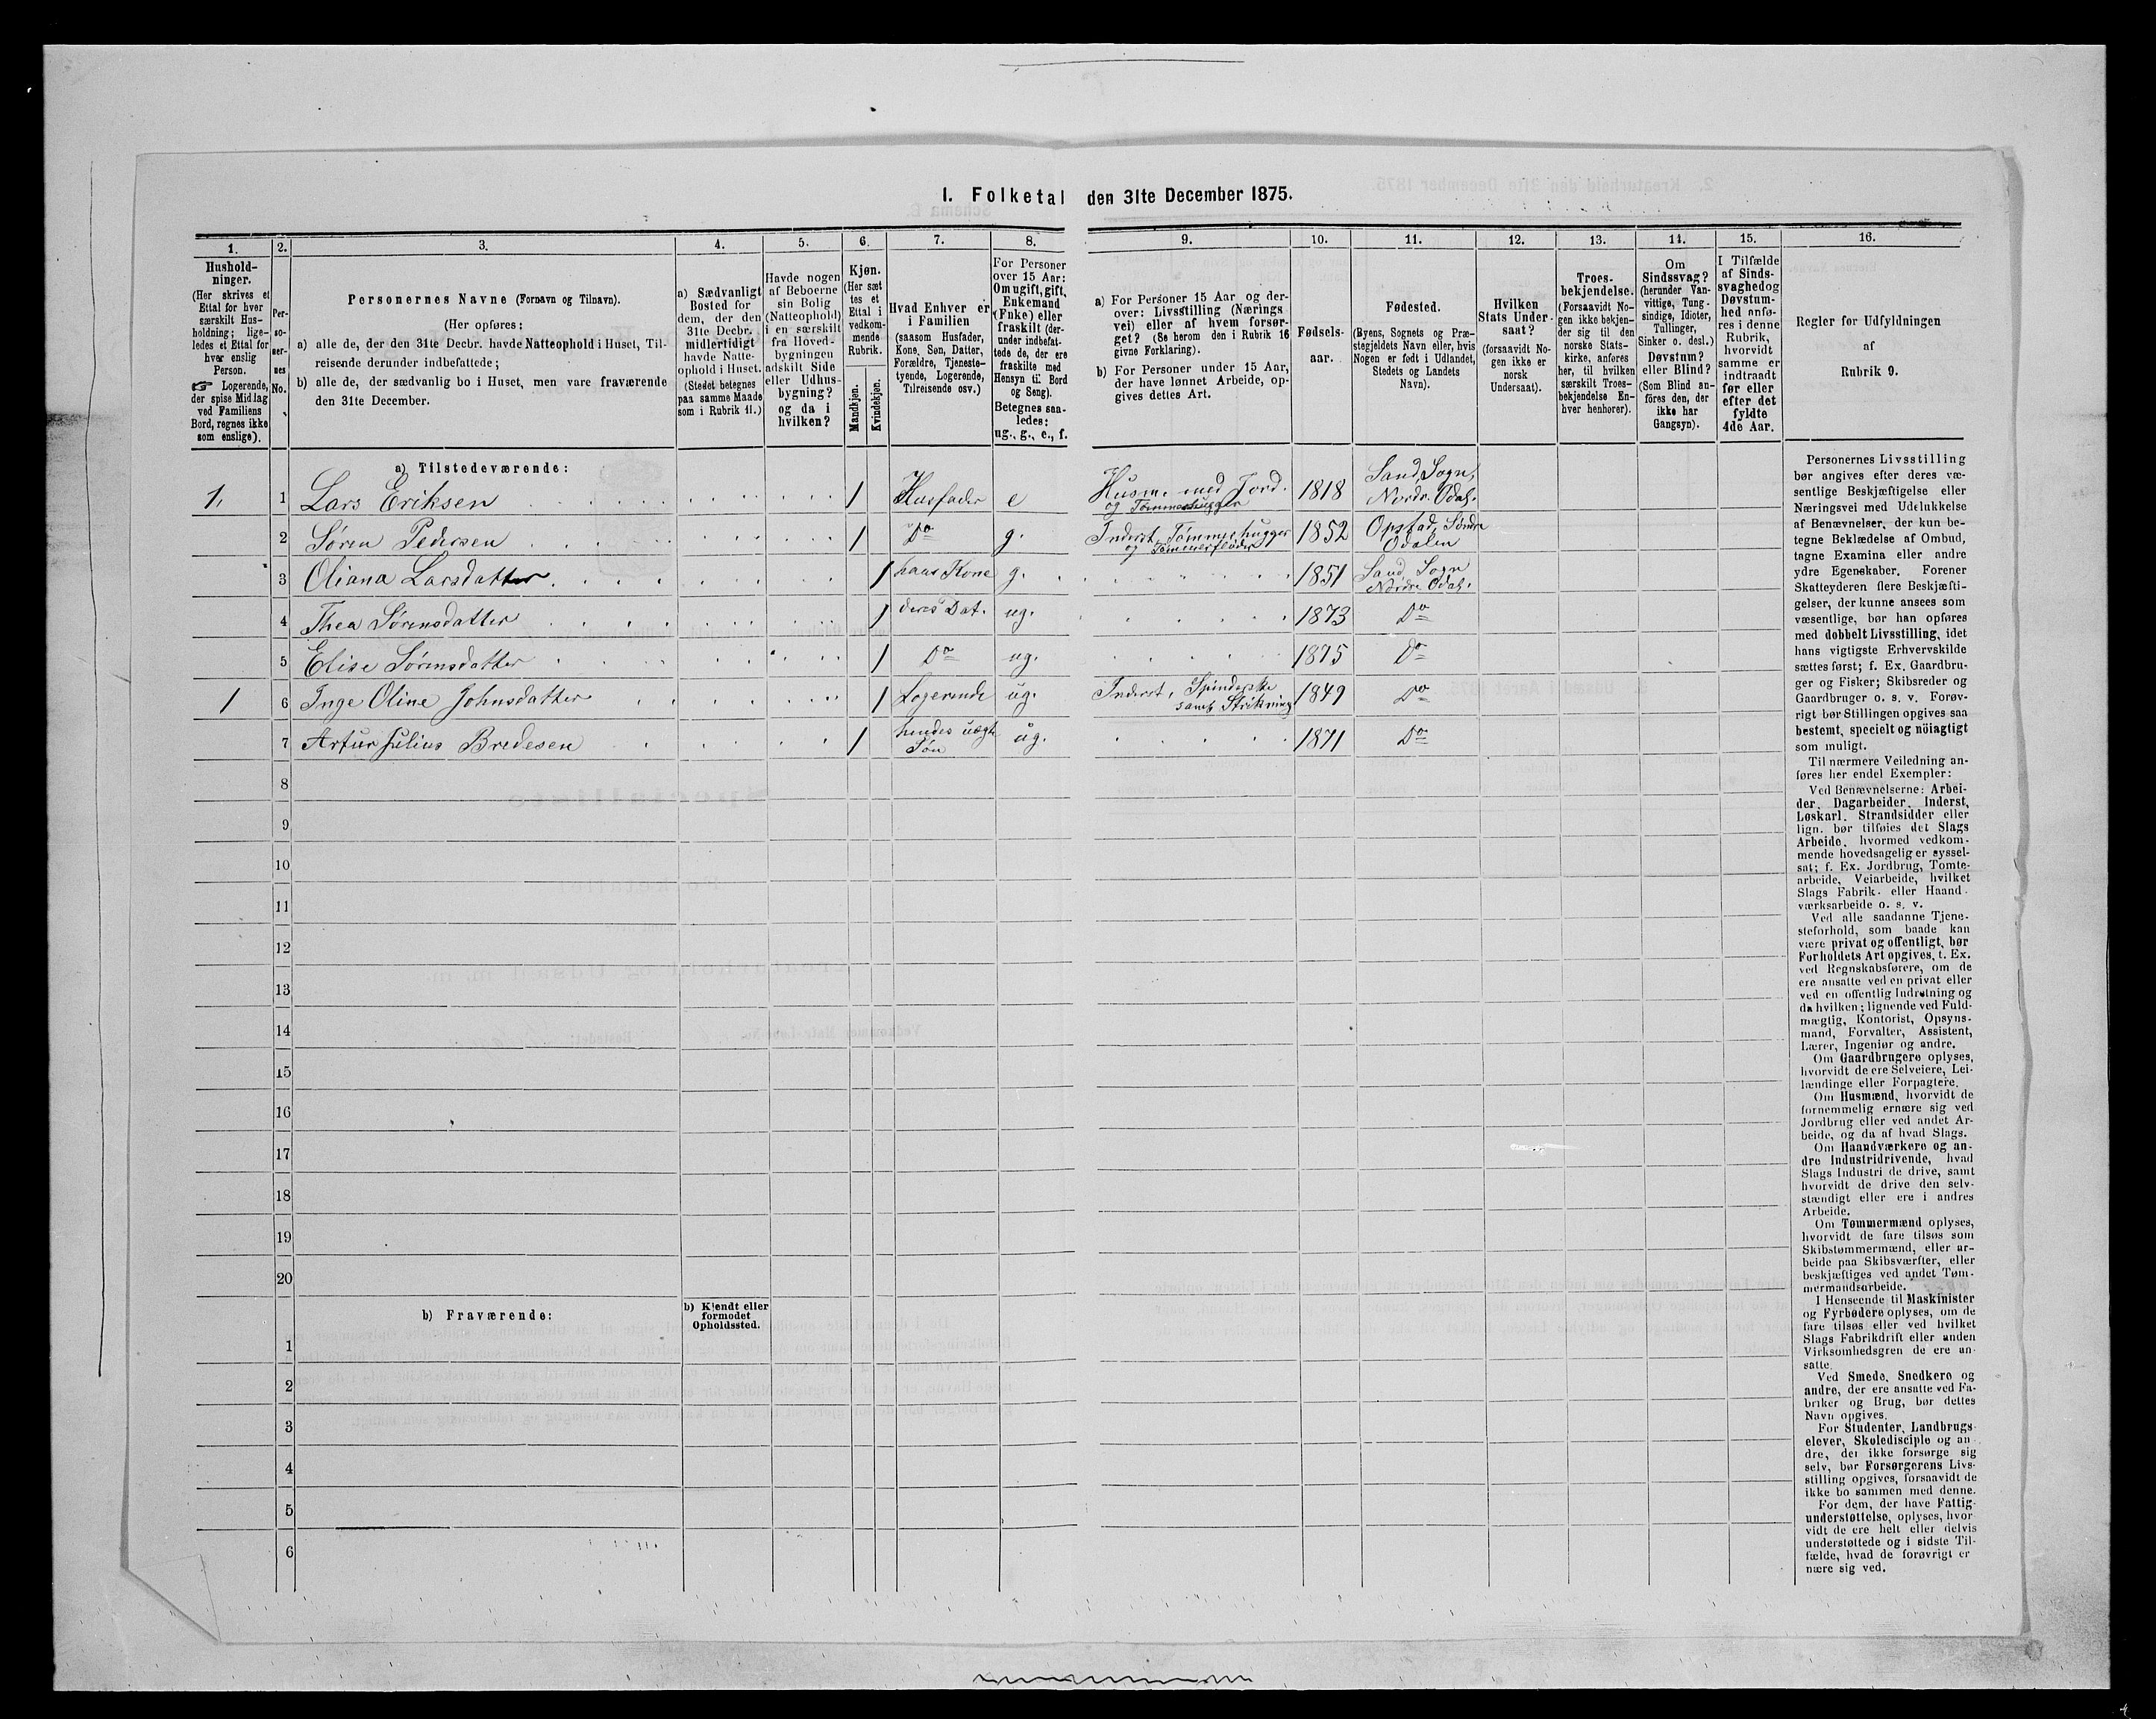 I. Folketal den 31te December 1875.
1.
Hushold-
ninger.
(Her skrives et
Ettal for hver
særskilt Hus-
holdning; lige-
ledes et Ettal for
hver enslig
Person.
☞ Logerende,
der spise Middag
ved Familiens
Bord, regnes ikke
som enslige).
2.
Per-
so-
ner-
nes
No.
3.
Personernes Navne (Fornavn og Tilnavn).
(Her opføres:
a) alle de, der den 31te Decbr. havde Natteophold i Huset, Til-
reisende derunder indbefattede;
b) alle de, der sædvanlig bo i Huset, men vare fraværende
den 31te December.
4.
a) Sædvanligt
Bosted for
dem, der den
31te Decbr.
midlertidigt
havde Natte-
ophold i Huset.
(Stedet betegnes
paa samme Maade
som i Rubrik 11.)
5.
Havde nogen
af Beboerne
sin Bolig
(Natteophold)
i en særskilt
fra Hoved-
bygningen
adskilt Side
eller Udhus-
bygning?
og da i
hvilken?
6.
Kjøn.
(Her sæt
tes et
Ettal i
vedkom-
mende
Rubrik.
Mandkjøn.
Kvindekjøn.
7.
Hvad Enhver er
i Familien
(saasom Husfader,
Kone, Søn, Datter,
Forældre, Tjeneste-
tyende, Logerende,
Tilreisende osv.)
8.
For Personer
over 15 Aar:
Om ugift, gift,
Enkemand
(Enke) eller
fraskilt (der-
under indbefat-
tede de, der ere
fraskilte med
Hensyn til Bord
og Seng).
Betegnes saa-
ledes:
ug., g., e., f.
9.
a) For Personer 15 Aar og der-
over: Livsstilling (Nærings
vei) eller af hvem forsør-
get? (Se herom den i Rubrik 16
givne Forklaring).
b) For Personer under 15 Aar,
der have lønnet Arbeide, op-
gives dettes Art.
10.
Fødsels-
aar.
11.
Fødested.
(Byens, Sognets og Præ-
stegjeldets Navn eller, hvis
Nogen er født i Udlandet,
Stedets og Landets
Navn).
12.
Hvilken
Stats Under-
saat?
(forsaavidt No-
gen ikke er
norsk
Undersaat).
13.
Troes-
bekjendelse.
(Forsaavidt No-
gen ikke bekjen-
der sig til den
norske Stats-
kirke, anføres
her, til hvilken
særskilt Troes-
bekjendelse En-
hver henhører).
14.
Om
Sindssvag?
(herunder Van-
vittige, Tung-
sindige, Idioter,
Tullinger,
Sinker o. desl.)
Døvstum?
eller Blind?
(Som Blind an-
føres den, der
ikke har
Gangsyn).
15.
I Tilfælde
af Sinds-
svaghed og
Døvstum-
hed anfø-
res i denne
Rubrik,
hvorvidt
samme er
indtraadt
før eller
efter det
fyldte
4de Aar.
16.
Regler for Udfyldningen
af
Rubrik 9.
a) Tilstedeværende:
1. 1 Lars Eriksen 1 Husfader e Husm. med Jord. og Tømmerhugger 1818 Sand Sogn, Nordr. Odal.
2 Søren Pedersen 1 Do g. Inderst, Tømmerhugger og Tømmerfløder 1852 Opstad, Søndre Odalen
3 Oliana Larsdatter 1 hans Kone g. 1851 Sand Sogn Nordre Odal.
4 Thea Sørensdatter 1 deres Dat. ug. 1873 Do
5 Elise Sørensdatter 1 Do ug. 1875 Do
1 6 Inge Oline Johnsdatter 1 Logerende ug. Inderst, Spinderske samt Strikning 1849 Do
7 Artur Julius Bredesen 1 hendes uægt. Søn ug. 1871 Do
8
9
10
11
12
13
14
15
16
17
18
19
20
b) Fraværende:
b) Kjendt eller
formodet
Opholdssted.
1
2
3
4
5
6
Personernes Livsstilling
bør angives efter deres væ-
sentlige Beskjæftigelse eller
Næringsvei med Udelukkelse
af Benævnelser, der kun be-
tegne Beklædelse af Ombud,
tagne Examina eller andre
ydre Egenskaber. Forener
Skatteyderen flere Beskjæfti-
gelser, der kunne ansees som
væsentlige, bør han opføres
med dobbelt Livsstilling, idet
hans vigtigste Erhvervskilde
sættes først; f. Ex. Gaardbru-
ger og Fisker; Skibsreder og
Gaardbruger o. s. v. Forøv-
rigt bør Stillingen opgives saa
bestemt, specielt og nöiagtigt
som muligt.
Til nærmere Veiledning an-
føres her endel Exempler:
Ved Benævnelserne: Arbei-
der, Dagarbeider, Inderst,
Løskarl, Strandsidder eller
lign. bør tilføies det Slags
Arbeide, hvormed vedkom-
mende hovedsagelig er syssel-
sat; f. Ex. Jordbrug, Tomte-
arbeide, Veiarbeide, hvilket
Slags Fabrik- eller Haand-
værksarbeide o. s. v.
Ved alle saadanne Tjene-
steforhold, som baade kan
være privat og offentligt, bør
Forholdets Art opgives, t. Ex.
ved Regnskabsførere, om de
ere ansatte ved en privat eller
ved en offentlig Indretning og
da hvilken; lignende ved Fuld-
mægtig, Kontorist, Opsyns-
mand, Forvalter, Assistent,
Lærer, Ingeniør og andre.
Om Gaardbrugere oplyses,
hvorvidt de ere Selveiere, Lei-
lændinge eller Forpagtere.
Om Husmænd, hvorvidt de
fornemmelig ernære sig ved
Jordbrug eller ved andet Ar-
beide, og da af hvad Slags.
Om Haandværkere og an-
dre Industridrivende, hvad
Slags Industri de drive, samt
hvorvidt de drive den selv-
stændigt eller ere i andres
Arbeide.
Om Tømmermænd oplyses,
hvorvidt de fare tilsøs som
Skibstømmermænd, eller ar-
beide paa Skibsværfter, eller
beskjæftiges ved andet Tøm-
mermandsarbeide.
I Henseende til Maskinister
og Fyrbødere oplyses, om de
fare tilsøs eller ved hvilket
Slags Fabrikdrift eller anden
Virksomhedsgren de ere an-
satte.
Ved Smede, Snedkere og
andre, der ere ansatte ved Fa-
briker og Brug, bør dettes
Navn opgives.
For Studenter, Landbrugs-
elever, Skoledisciple og an-
dre, der ikke forsørge sig
selv, bør Forsørgerens Livs-
stilling opgives, forsaavidt de
ikke bo sammen med denne.
For dem, der have Fattig-
understøttelse, oplyses, hvor-
vidt de ere helt eller delvis
understøttede og i sidste Til-
fælde, hvad de forøvrigt er
nære sig ved.